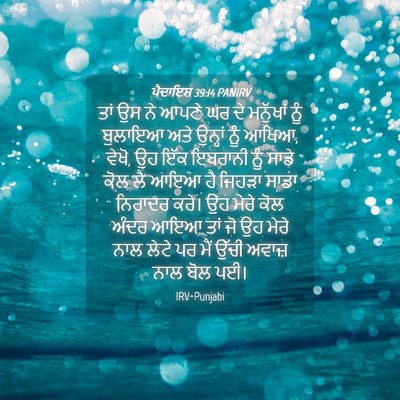 ਪੈਦਾਇਸ਼ 39:14 PANIRV
ਤਾਂ ਉਸ ਨੇ ਆਪਣੇ ਘਰ ਦੇ ਮਨੁੱਖਾਂ ਨੂੰ
ਬੁਲਾਇਆ ਅਤੇ ਉਨ੍ਹਾਂ ਨੂੰ ਆਖਿਆ,
ਵੇਖੋ, ਉਹ ਇੱਕ ਇਬਰਾਨੀ ਨੂੰ ਸਾਡੇ
ਕੋਲ ਲੈ ਆਇਆ ਹੈ ਜਿਹੜਾ ਸਾਡਾ
ਨਿਰਾਦਰ ਕਰੇ। ਉਹ ਮੇਰੇ ਕੋਲ
ਅੰਦਰ ਆਇਆ ਤਾਂ ਜੋ ਉਹ ਮੇਰੇ
ਨਾਲ ਲੇਟੇ ਪਰ ਮੈਂ ਉੱਚੀ ਅਵਾਜ਼
ਨਾਲ ਬੋਲ ਪਈ।
IRV-Punjabi